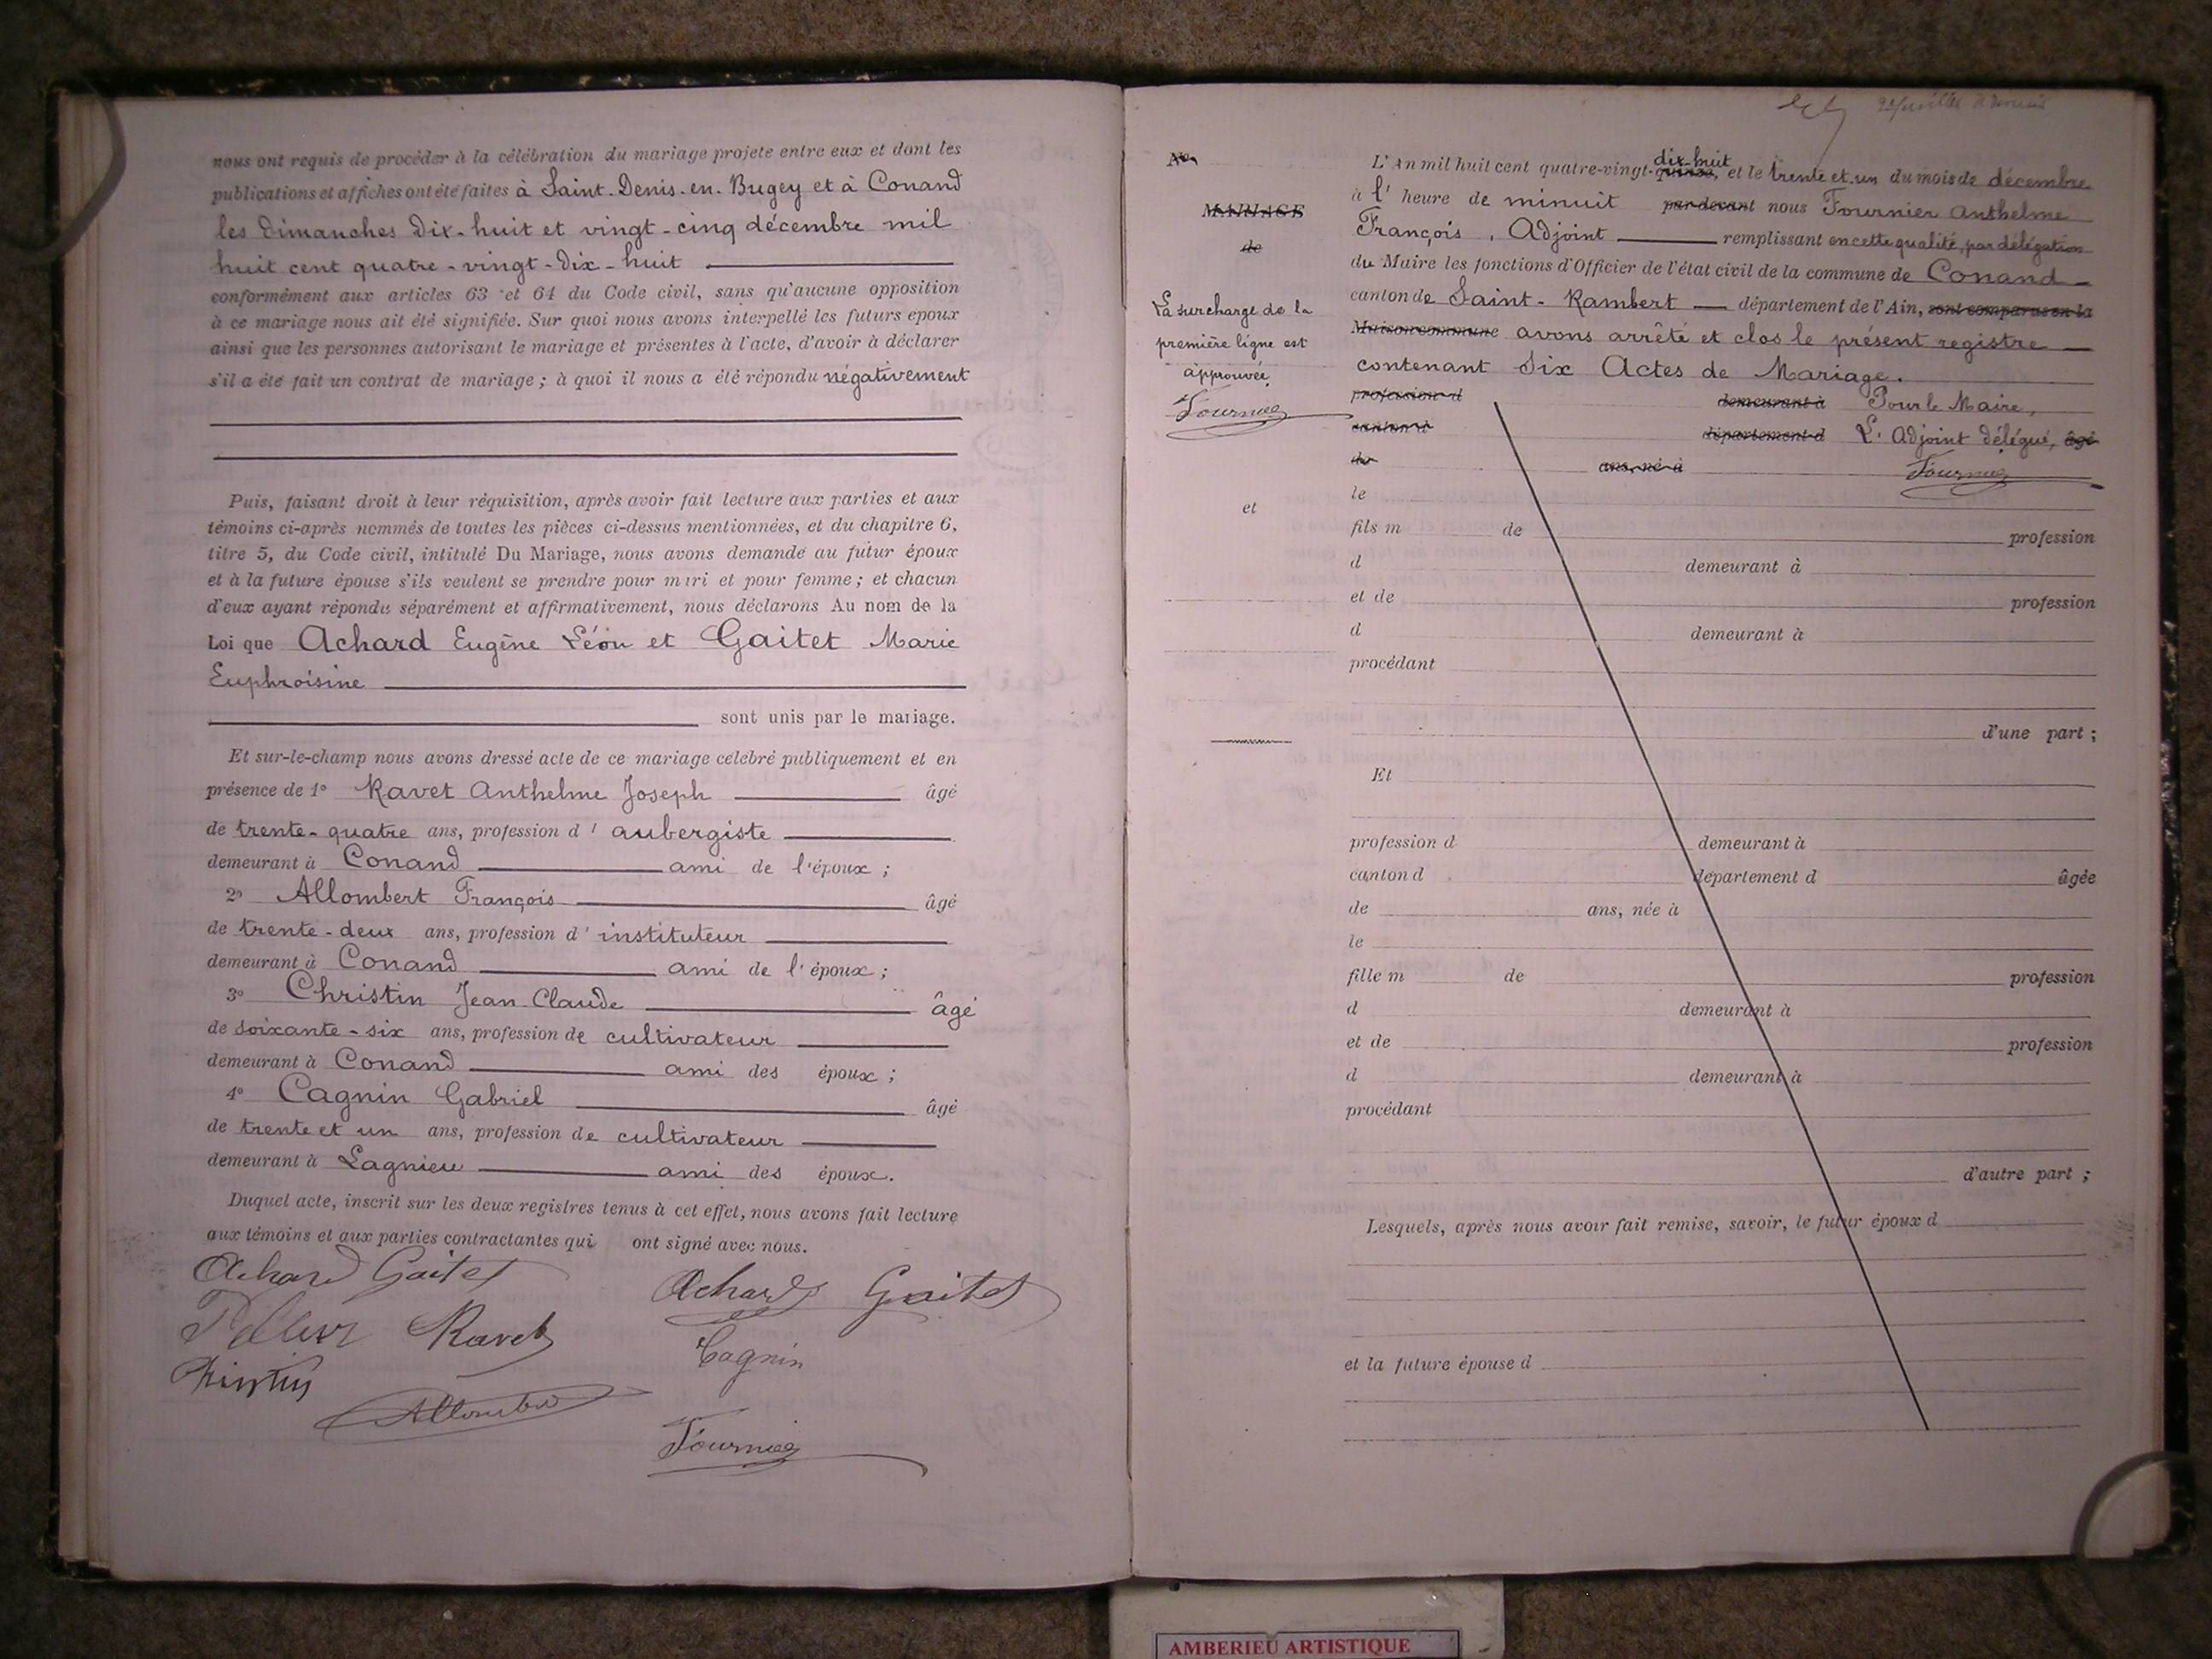 nous ont requis de procéder à la célébration du mariage projeté entre eux et dont les
publications et affiches ont été faites à Saint-Denis-en-Bugey et à Conand
les Dimanches dix-huit et vingt-cinq décembre mil
huit cent quatre-vingt-dix-huit
conformément aux articles 63 et 64 du Code civil, sans qu'aucune opposition
à ce mariage nous ait été signifiée. Sur quoi nous avons interpellé les futurs époux
ainsi que les personnes autorisant le mariage et présentes à l'acte, d'avoir à déclarer
s'il a été fait un contrat de mariage ; à quoi il nous a été répondu négativement
Puis, faisant droit à leur réquisition, après avoir fait lecture aux parties et aux
témoins ci-après nommés de toutes les pièces ci-dessus mentionnées, et du chapitre 6,
titre 5, du Code civil, intitulé Du Mariage, nous avons demandé au futur époux
et à la future épouse s'ils veulent se prendre pour mari et pour femme ; et chacun
d'eux ayant répondu séparément et affirmativement, nous déclarons Au nom de la
Loi que Achard Eugène Léon et Gaitet Marie
Euphroisine
sont unis par le mariage.
Et sur-le-champ nous avons dressé acte de ce mariage célébré publiquement et en
présence de 1° Ravet Anthelme Joseph âgé
de trente-quatre ans, profession d'aubergiste
demeurant à Conand ami de l'époux ;
2° Allombert François âgé
de trente-deux ans, profession d'instituteur
demeurant à Conand ami de l'époux ;
3° Christin Jean-Claude âgé
de soixante-six ans, profession de cultivateur
demeurant à Conand ami des époux ;
4° Cagnin Gabriel âgé
de trente et un ans, profession de cultivateur
demeurant à Lagnieu ami des époux.
Duquel acte, inscrit sur les deux registres tenus à cet effet, nous avons fait lecture
aux témoins et aux parties contractantes qui ont signé avec nous.
Achard Gaitet
Achard Gaitet
Ravet
Cagnin
Christin
Allombert
Fournier
No
MARIAGE
de
La surcharge de la
première ligne est
approuvée.
Fournier
et
L'An mil huit cent quatre-vingt-quinze, dix-huit et le trente et un du mois de décembre
à l'heure de minuit par devant nous Fournier Anthelme
François, Adjoint remplissant en cette qualité, par délégation
du Maire les fonctions d'Officier de l'état civil de la commune de Conand
canton de Saint-Rambert département de l'Ain, sont comparus en la
Maison commune avons arrêté et clos le présent registre
contenant Six Actes de Mariage.
profession d demeurant à Pour le Maire,
canton d département d L'Adjoint délégué, âgé
de ans, né à Fournier
le
fils m de profession
d demeurant à
et de profession
d demeurant à
procédant
d'une part ;
Et
profession d demeurant à
canton d département d âgée
de ans, née à
le
fille m de profession
d demeurant à
et de profession
d demeurant à
procédant
d'autre part ;
Lesquels, après nous avoir fait remise, savoir, le futur époux d
et la future épouse d
AMBERIEU ARTISTIQUE